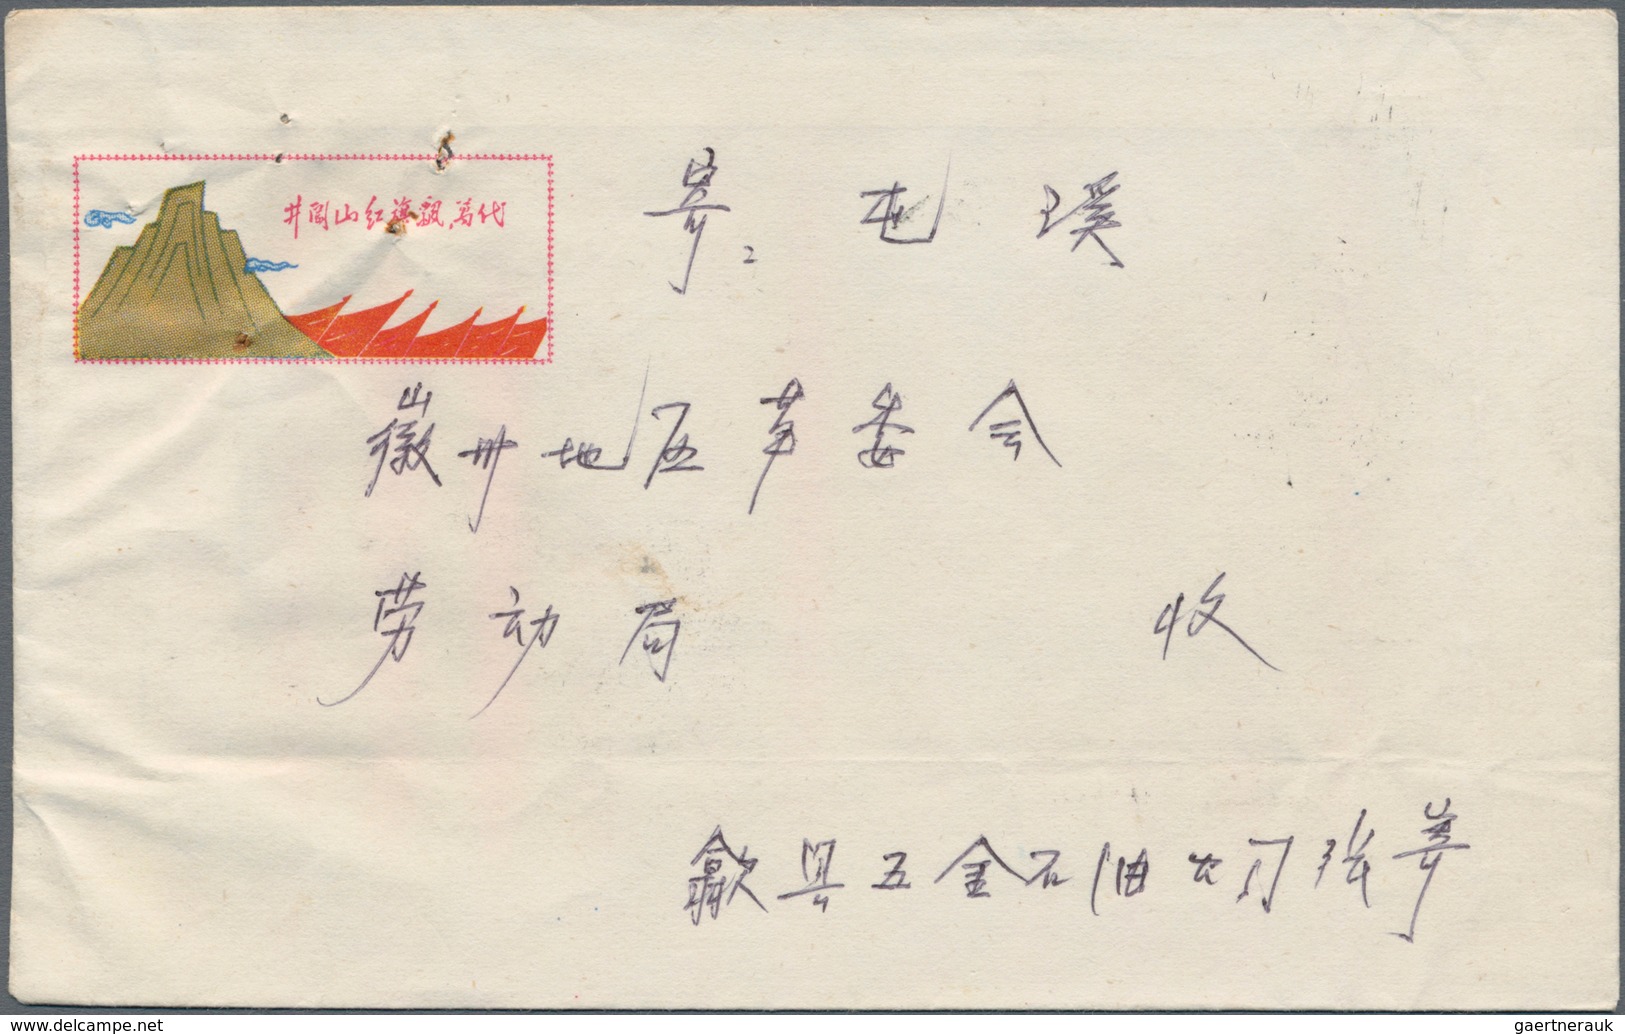 井岡山红旗飘萬代
寄：屯溪
徽州地区革委会
劳动局 收
歙县五金石油公司张寄
gaertnerauk